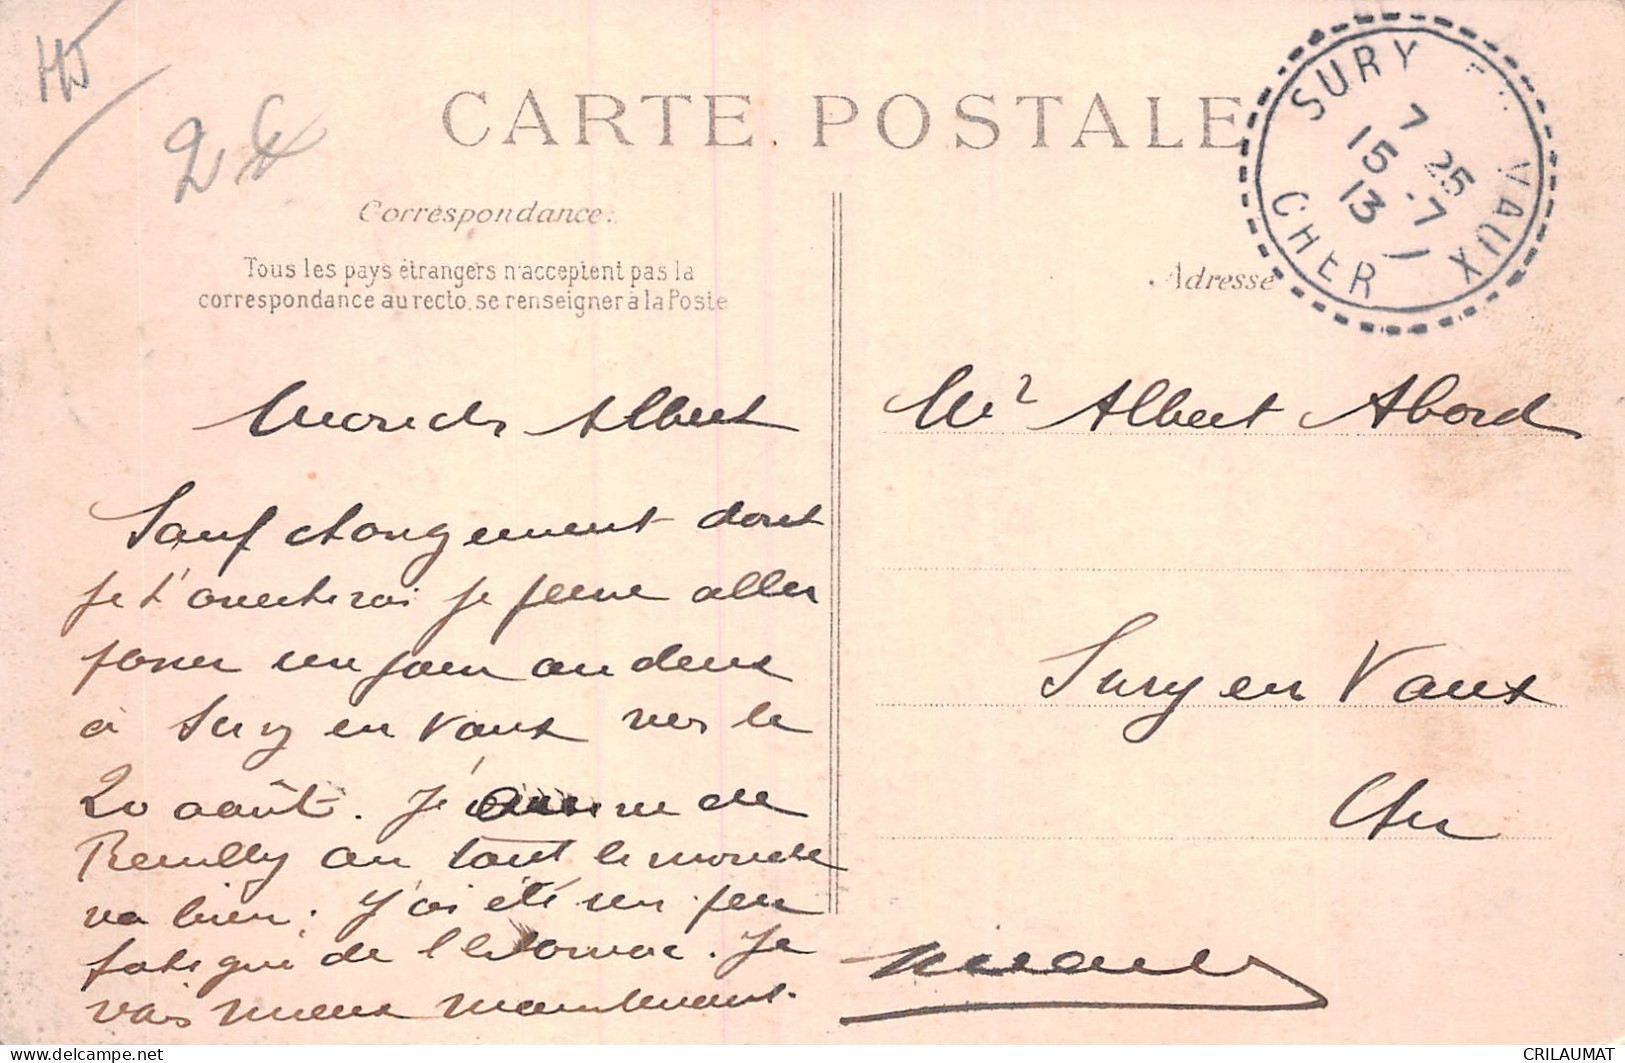 HJ
2€
CARTE POSTALE
SURY VAUX
CHER
7 25
15 -7
13
Correspondance:
Tous les pays étrangers n'acceptent pas la
correspondance au recto, se renseigner à la Poste
Adresse
Albert
Sauf changement dont
je t'avertirai je pense aller
passer un jour ou deux
à Sury en Vaux vers le
20 août. J'arrive de
Reuilly où tout le monde
va bien; j'ai été un peu
fatigué de l'estomac. Je
vais mieux maintenant.
Mr Albert Abord
Sury en Vaux
Cher
CRILAUMAT